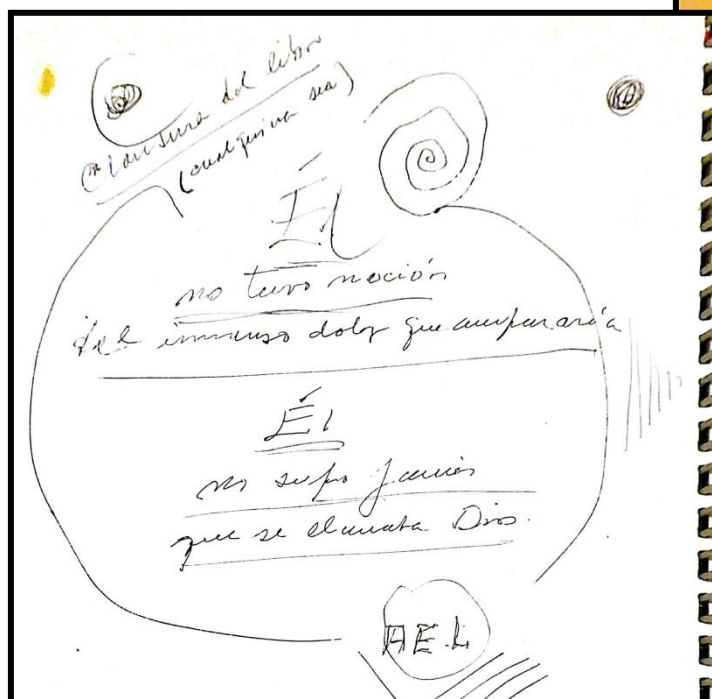 Clausura del libro
(cualquiera sea)
Él
no tuvo noción
del inmenso dolor que ampararía
Él
no supo jamás
que se llamaba Dios.
A.E.L